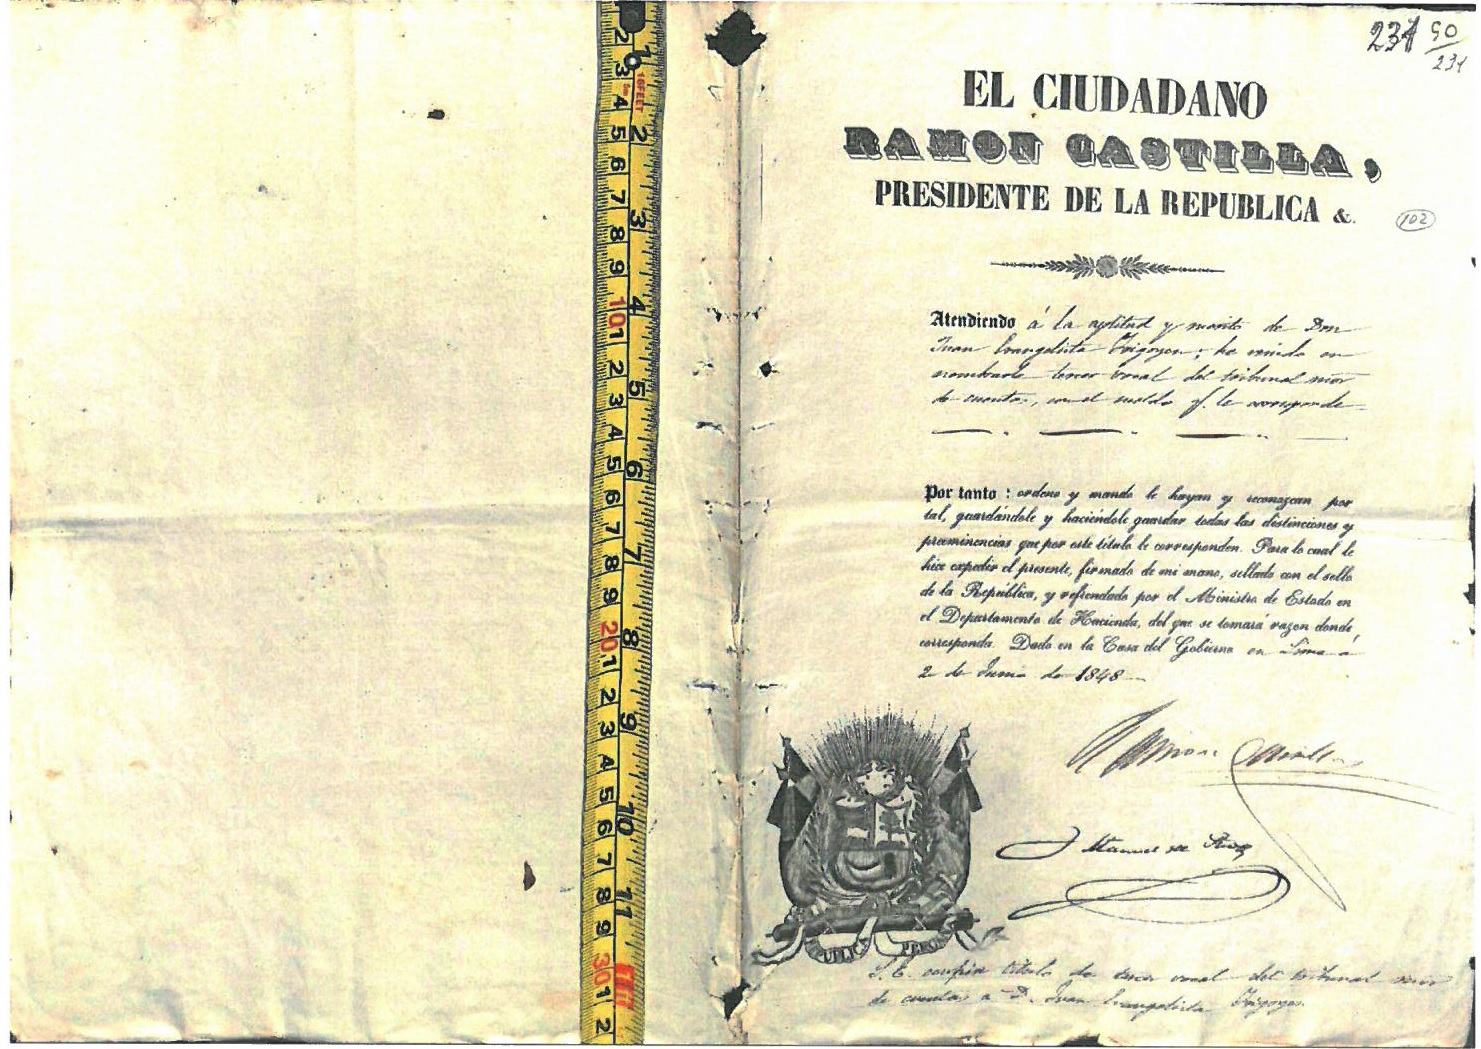 231 90
231
EL CIUDADANO
RAMON CASTILLA,
PRESIDENTE DE LA REPUBLICA &.
102
Atendiendo á la aptitud y merito de Don
Juan Evangelista Irigoyen; he venido en
nombrarle tercer vocal del tribunal mor
de cuentas, con el sueldo q. le corresponde
Por tanto: ordeno y mando le hayan y reconozcan por
tal, guardándole y haciéndole guardar todas las distinciones y
preeminencias que por este título le corresponden. Para lo cual le
hice expedir el presente, firmado de mi mano, sellado con el sello
de la República, y refrendado por el Ministro de Estado en
el Departamento de Hacienda, del que se tomará razon donde
corresponda. Dado en la Casa del Gobierno en Lima á
2 de Junio de 1848
Ramon Castilla
Manuel del Rio
REPUBLICA PERUANA
S. E. confia título de tercer vocal del tribunal mor
de cuentas a D. Juan Evangelista Irigoyen